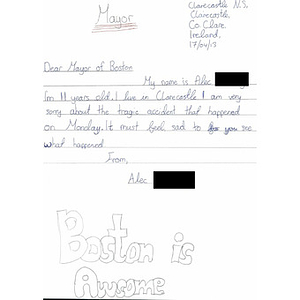 Mayor
Clarecastle N.S.
Clarecastle,
Co. Clare
Ireland,
17/04/13
Dear Mayor of Boston
My name is Alec
I'm 11 years old. I live in Clarecastle I am very
sorry about the tragic accident that happened
on Monday. It must feel sad to see
what happened
From,
Alec
Boston is
Awsome